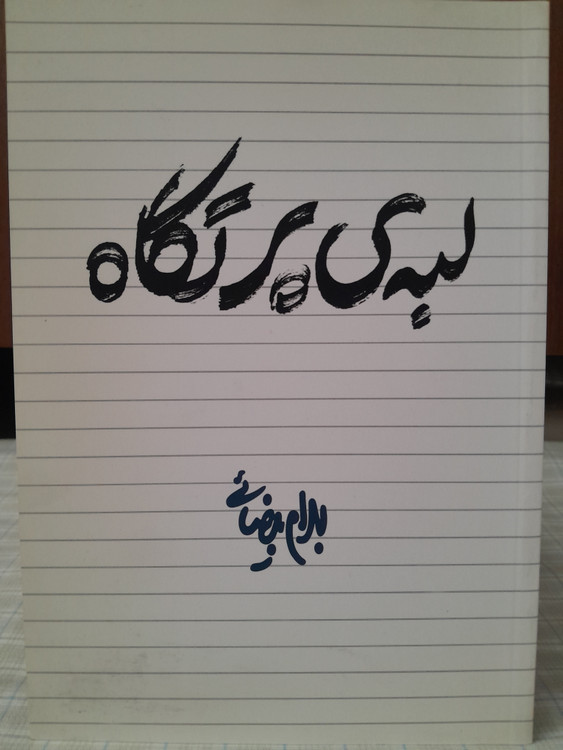 لبه‌ی پرتگاه
بهرام بیضائی